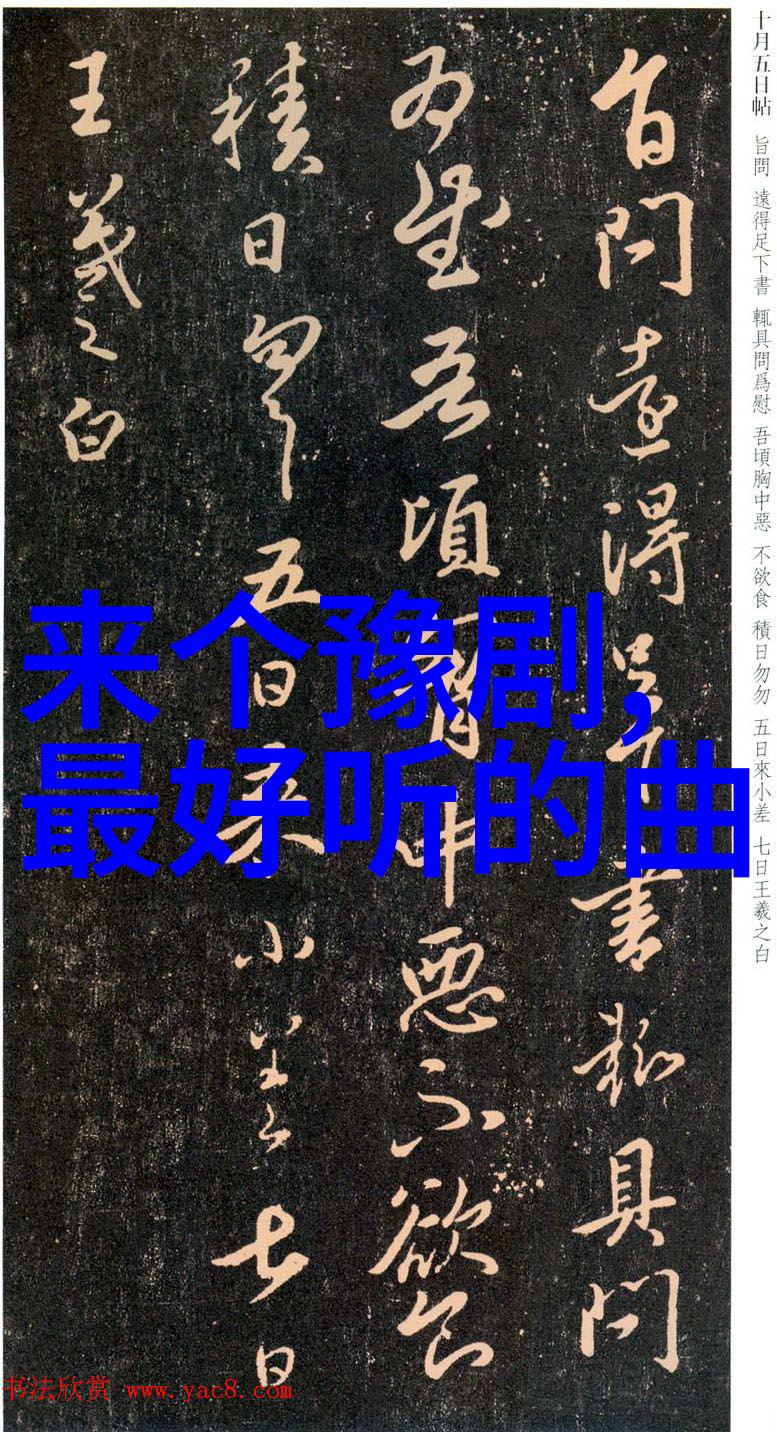 十月五日帖 旨問 遠得足下書 輒具問爲慰 吾頃胸中惡 不欲食 積日勿勿 五日來小差 七日王羲之白
旨問遠得足下書輒具問
為慰吾頃胸中惡不欲食
積日勿勿五日來小差七日
王羲之白
来个豫剧,
最好听的曲
书法欣赏 www.yac8.com